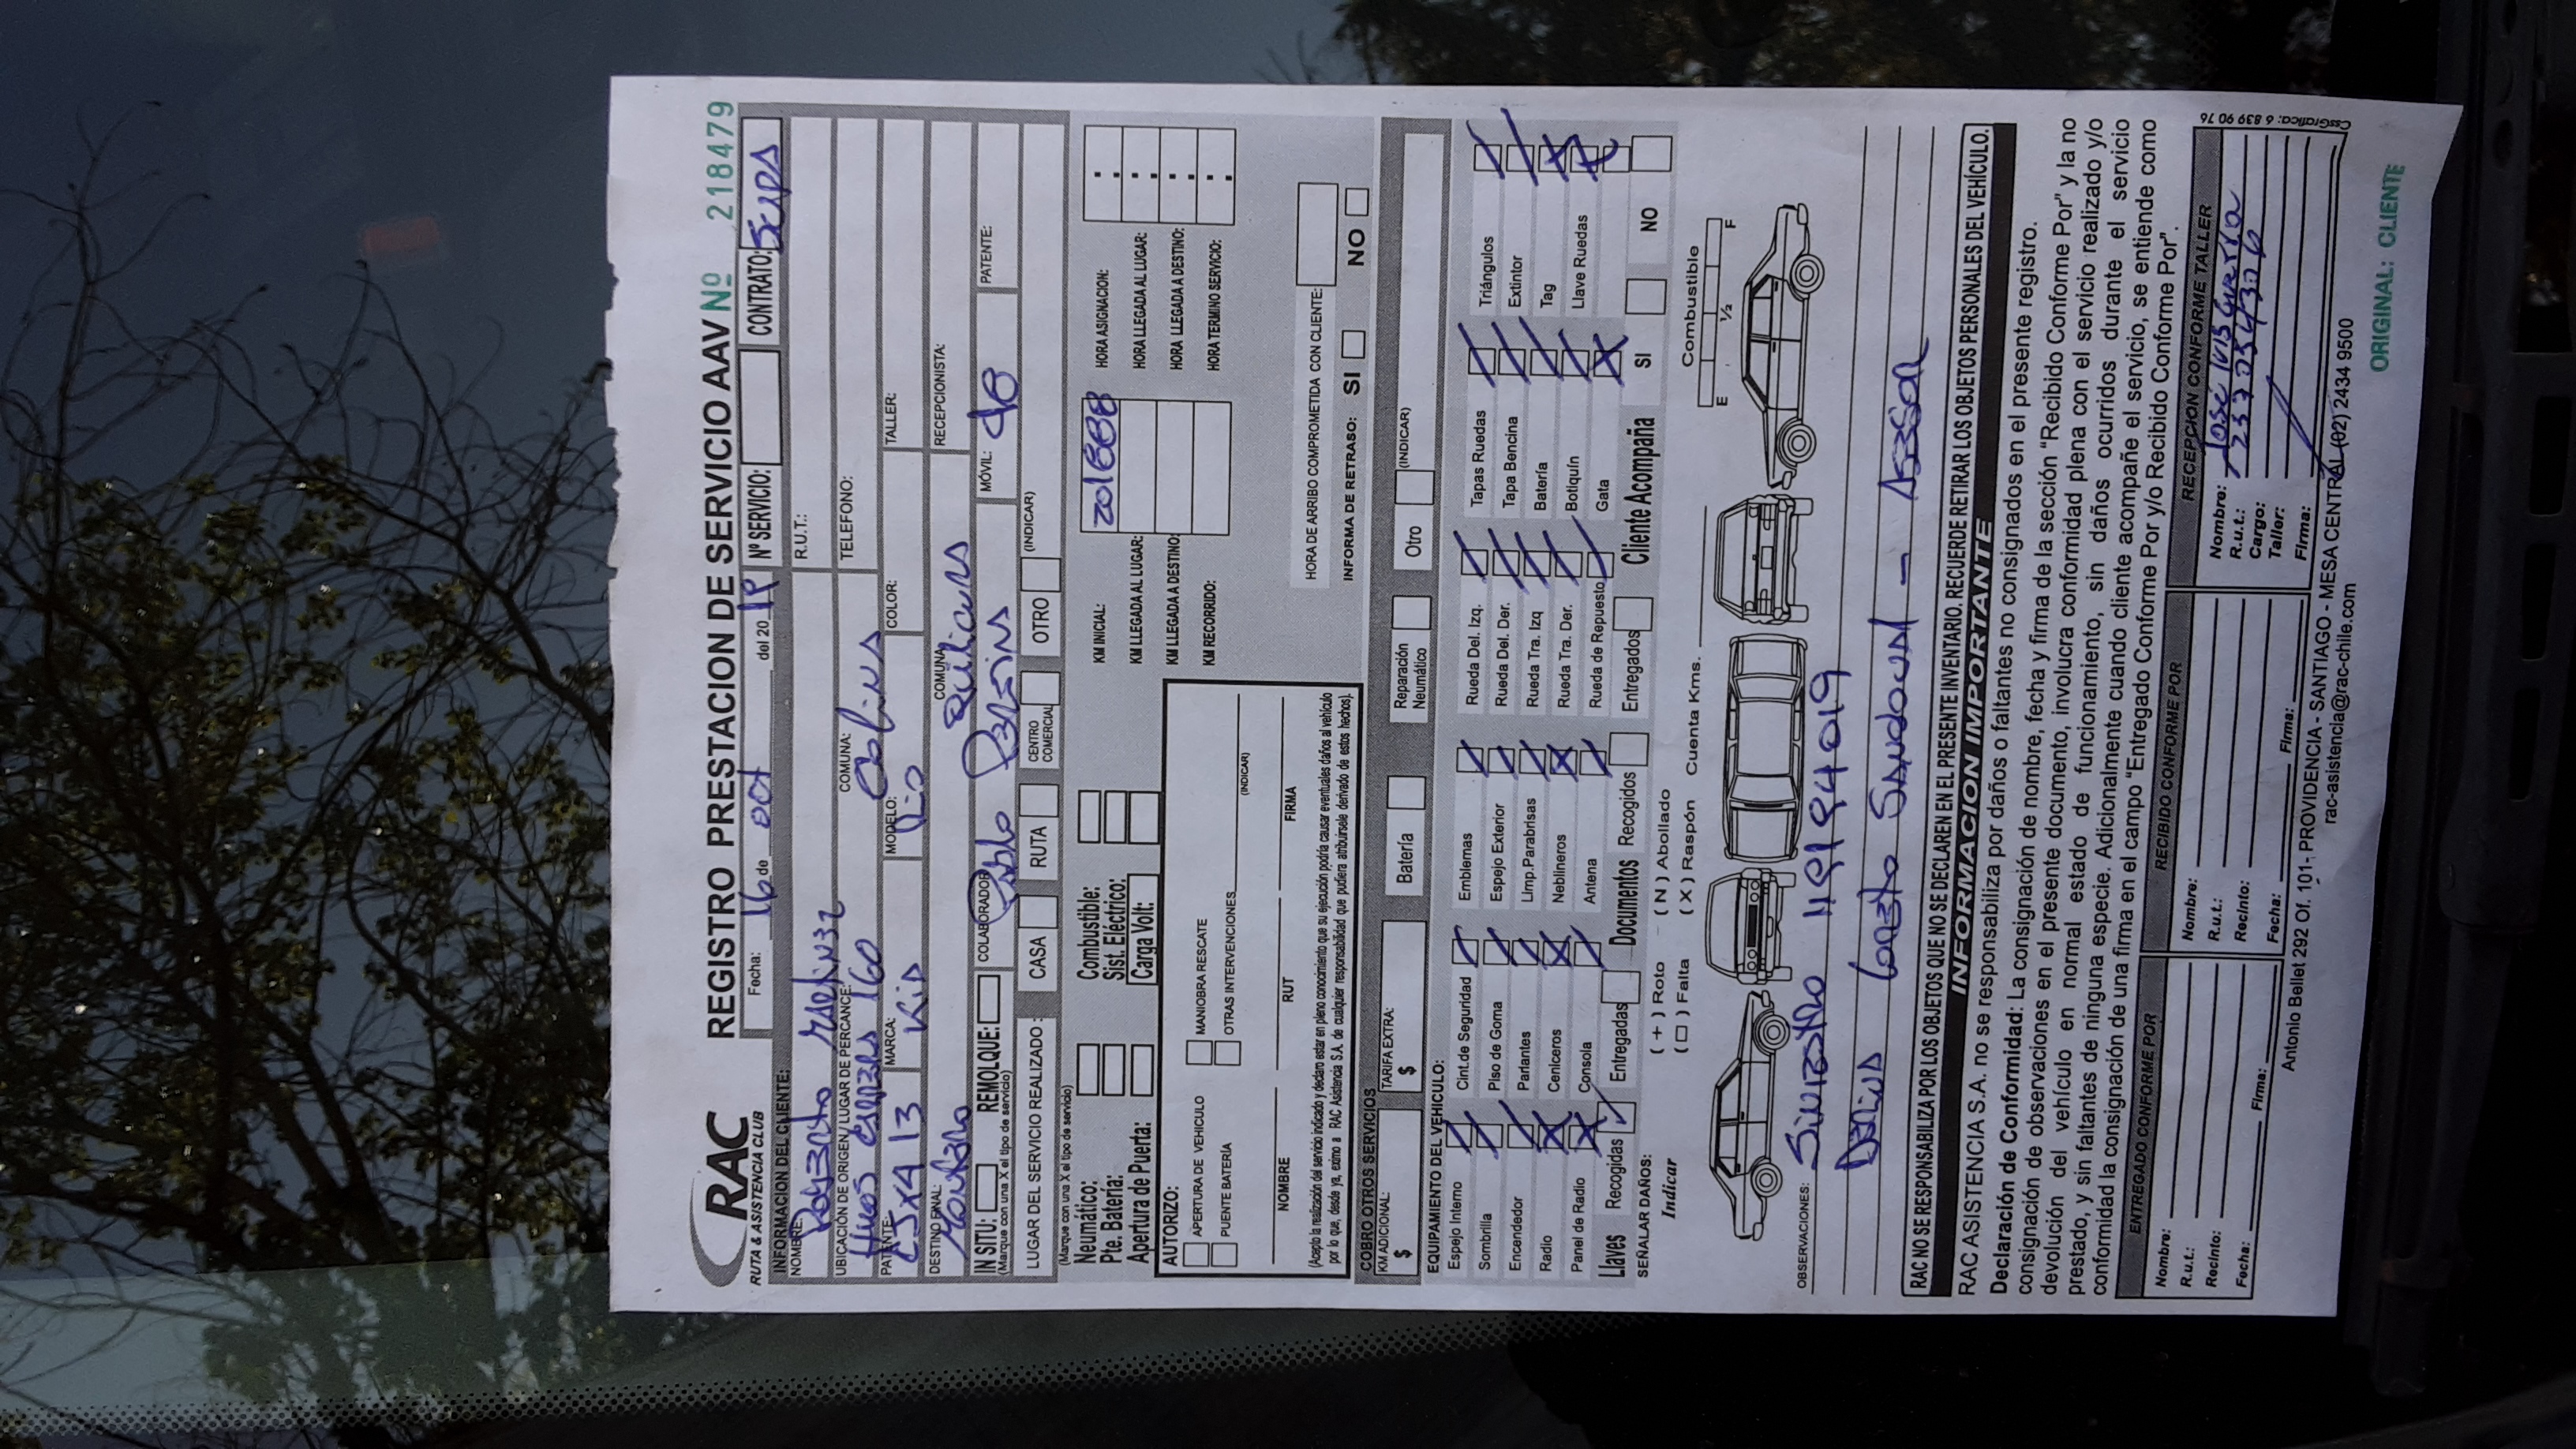 RAC
RUTA & ASISTENCIA CLUB
REGISTRO PRESTACION DE SERVICIO AAV Nº 218479
Fecha: 16 de oct del 20 19 Nº SERVICIO: CONTRATO:
INFORMACION DEL CLIENTE:
NOMBRE: R.U.T.:
UBICACIÓN DE ORIGEN/LUGAR DE PERCANCE: 160 COMUNA: Colina TELEFONO:
PATENTE: MARCA: Kia MODELO: Rio COLOR: TALLER:
DESTINO FINAL: COMUNA: Quilicura RECEPCIONISTA:
IN SITU: REMOLQUE: COLABORADOR: Pablo MÓVIL: PATENTE:
(Marque con una X el tipo de servicio)
LUGAR DEL SERVICIO REALIZADO: CASA RUTA CENTRO COMERCIAL OTRO (INDICAR)
(Marque con una X el tipo de servicio)
Neumático: Combustible:
Pte. Batería: Sist. Eléctrico:
Apertura de Puerta: Carga Volt:
KM INICIAL: 201888 HORA ASIGNACION:
KM LLEGADA AL LUGAR: HORA LLEGADA AL LUGAR:
KM LLEGADA A DESTINO: HORA LLEGADA A DESTINO:
KM RECORRIDO: HORA TERMINO SERVICIO:
AUTORIZO:
APERTURA DE VEHICULO MANIOBRA RESCATE
PUENTE BATERÍA OTRAS INTERVENCIONES (INDICAR)
NOMBRE RUT FIRMA
(Acepto la realización del servicio indicado y declaro estar en pleno conocimiento que su ejecución podría causar eventuales daños al vehículo
por lo que, desde ya, eximo a RAC Asistencia S.A. de cualquier responsabilidad que pudiera atribuírsele derivado de estos hechos).
HORA DE ARRIBO COMPROMETIDA CON CLIENTE:
INFORMA DE RETRASO: SI NO
COBRO OTROS SERVICIOS
KM ADICIONAL: $ TARIFA EXTRA: $ Batería Reparación Neumático Otro (INDICAR)
EQUIPAMIENTO DEL VEHICULO:
Espejo Interno Cint.de Seguridad Emblemas Rueda Del. Izq. Tapas Ruedas Triángulos
Sombrilla Piso de Goma Espejo Exterior Rueda Del. Der. Tapa Bencina Extintor
Encendedor Parlantes Limp.Parabrisas Rueda Tra. Izq Batería Tag
Radio Ceniceros Neblineros Rueda Tra. Der. Botiquín Llave Ruedas
Panel de Radio Consola Antena Rueda de Repuesto Gata
Llaves Recogidas Entregadas Documentos Recogidos Entregados Cliente Acompaña SI NO
SEÑALAR DAÑOS:
Indicar (+) Roto (N) Abollado
(□) Falta (X) Raspón Cuenta Kms. Combustible
E ½ F
OBSERVACIONES: Siniestro 119194019
Sandoval - Asesor
RAC NO SE RESPONSABILIZA POR LOS OBJETOS QUE NO SE DECLAREN EN EL PRESENTE INVENTARIO. RECUERDE RETIRAR LOS OBJETOS PERSONALES DEL VEHÍCULO.
INFORMACION IMPORTANTE
RAC ASISTENCIA S.A. no se responsabiliza por daños o faltantes no consignados en el presente registro.
Declaración de Conformidad: La consignación de nombre, fecha y firma de la sección "Recibido Conforme Por" y la no
consignación de observaciones en el presente documento, involucra conformidad plena con el servicio realizado y/o
devolución del vehículo en normal estado de funcionamiento, sin daños ocurridos durante el servicio
prestado, y sin faltantes de ninguna especie. Adicionalmente cuando cliente acompañe el servicio, se entiende como
conformidad la consignación de una firma en el campo "Entregado Conforme Por y/o Recibido Conforme Por".
ENTREGADO CONFORME POR RECIBIDO CONFORME POR RECEPCION CONFORME TALLER
Nombre: Nombre: Nombre: Jose Luis Guerra
R.u.t.: R.u.t.: R.u.t.:
Recinto: Recinto: Cargo:
Fecha: Firma: Fecha: Firma: Taller:
Firma:
CssGrafica: 6 839 90 76
Antonio Bellet 292 Of. 101- PROVIDENCIA - SANTIAGO - MESA CENTRAL (02) 2434 9500
rac-asistencia@rac-chile.com
ORIGINAL: CLIENTE